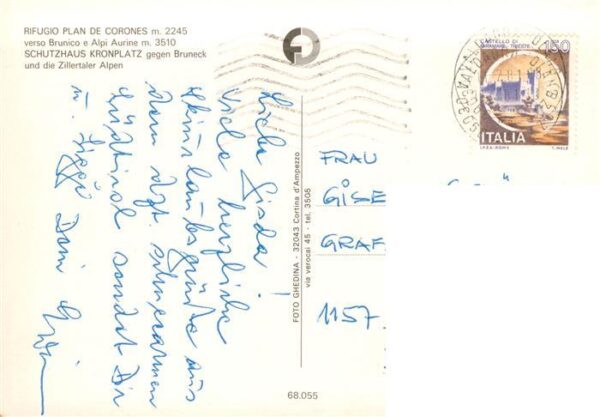 RIFUGIO PLAN DE CORONES m. 2245
verso Brunico e Alpi Aurine m. 3510
SCHUTZHAUS KRONPLATZ gegen Bruneck
und die Zillertaler Alpen
Liebe Gisela!
Viele herzliche
Skiurlaubsgrüße aus
dem dzt. schneearmen
Südtirol sendet Dir
u. Siggi Dein Erwin
FOTO GHEDINA - 32043 Cortina d'Ampezzo
via verocai 45 - tel. 3505
68.055
CASTELLO DI
MIRAMARE, TRIESTE
150
ITALIA
I.P.Z.S. ROMA
T. MELE
FRAU
GISE
GRAF
1157